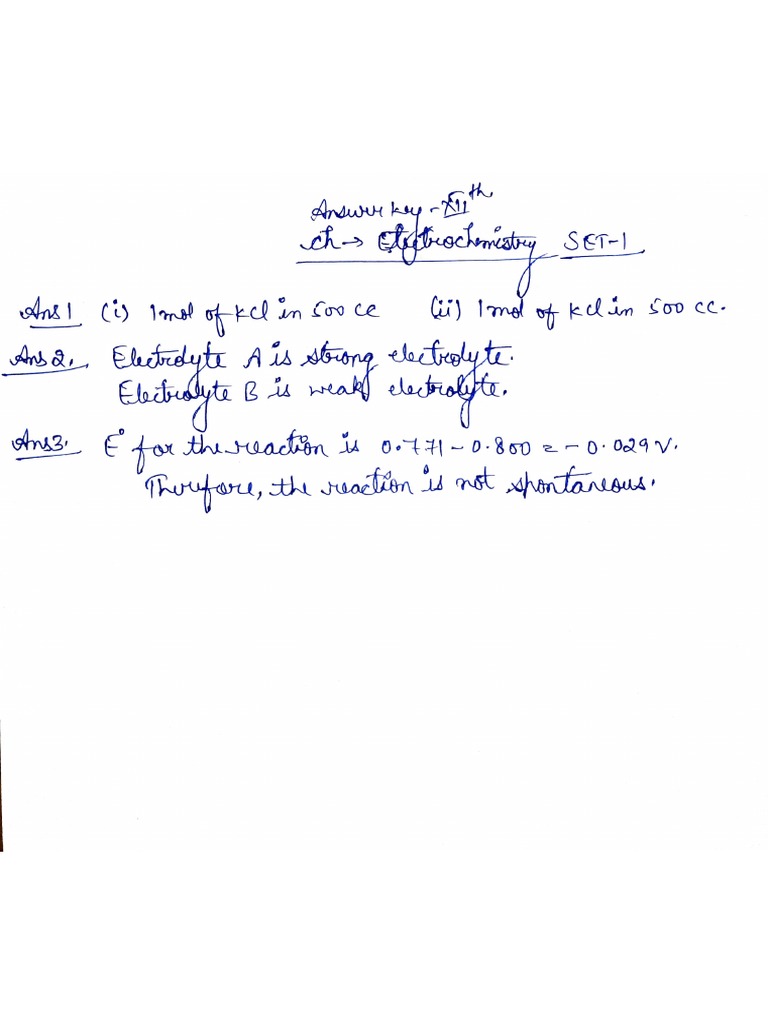 Answer key - XIIth
ch → Electrochemistry SET-1
Ans 1 (i) 1mol of kcl in 500 cc (ii) 1 mol of kcl in 500 cc.
Ans 2. Electrolyte A is strong electrolyte.
Electrolyte B is weak electrolyte.
Ans3. E° for the reaction is 0.771 - 0.800 = - 0.029 V.
Therefore, the reaction is not spontaneous.